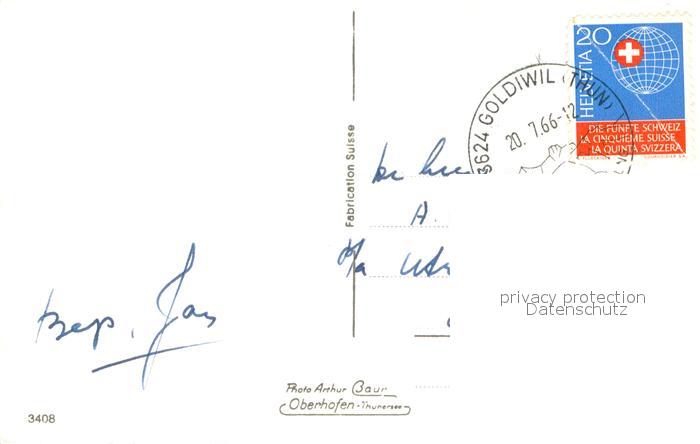 HELVETIA 20
DIE FÜNFTE SCHWEIZ
LA CINQUIÈME SUISSE
LA QUINTA SVIZZERA
3624 GOLDIWIL (THUN)
20. 7.66-12
Fabrication Suisse
A.
P/a
privacy protection
Datenschutz
Bep. Jan
Photo Arthur Baur
Oberhofen-Thunersee
3408